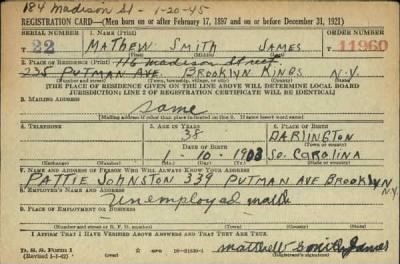 184 Madison St - 1-20-45
REGISTRATION CARD—(Men born on or after February 17, 1897 and on or before December 31, 1921)
SERIAL NUMBER 1. NAME (Print) ORDER NUMBER
T 22 MATHEW SMITH JAMES 11960
(First) (Middle) (Last)
2. PLACE OF RESIDENCE (Print) 116 Madison Street
235 PUTMAN AVE. BROOKLYN KINGS N-Y.
(Number and street) (Town, township, village, or city) (County) (State)
[THE PLACE OF RESIDENCE GIVEN ON THE LINE ABOVE WILL DETERMINE LOCAL BOARD
JURISDICTION; LINE 2 OF REGISTRATION CERTIFICATE WILL BE IDENTICAL]
3. MAILING ADDRESS
Same
[Mailing address if other than place indicated on line 2. If same insert word same]
4. TELEPHONE 5. AGE IN YEARS 6. PLACE OF BIRTH
38 DARLINGTON
DATE OF BIRTH (Town or county)
1-10-1903 SO. CAROLINA
(Exchange) (Number) (Mo.) (Day) (Yr.) (State or country)
7. NAME AND ADDRESS OF PERSON WHO WILL ALWAYS KNOW YOUR ADDRESS
PATTIE JOHNSTON 339 PUTMAN AVE BROOKLYN N.Y.
8. EMPLOYER'S NAME AND ADDRESS
Unemployed
9. PLACE OF EMPLOYMENT OR BUSINESS
(Number and street or R. F. D. number) (Town) (County) (State)
I AFFIRM THAT I HAVE VERIFIED ABOVE ANSWERS AND THAT THEY ARE TRUE.
D. S. S. Form 1
(Revised 1-1-42) (over)
Matthew Smith James